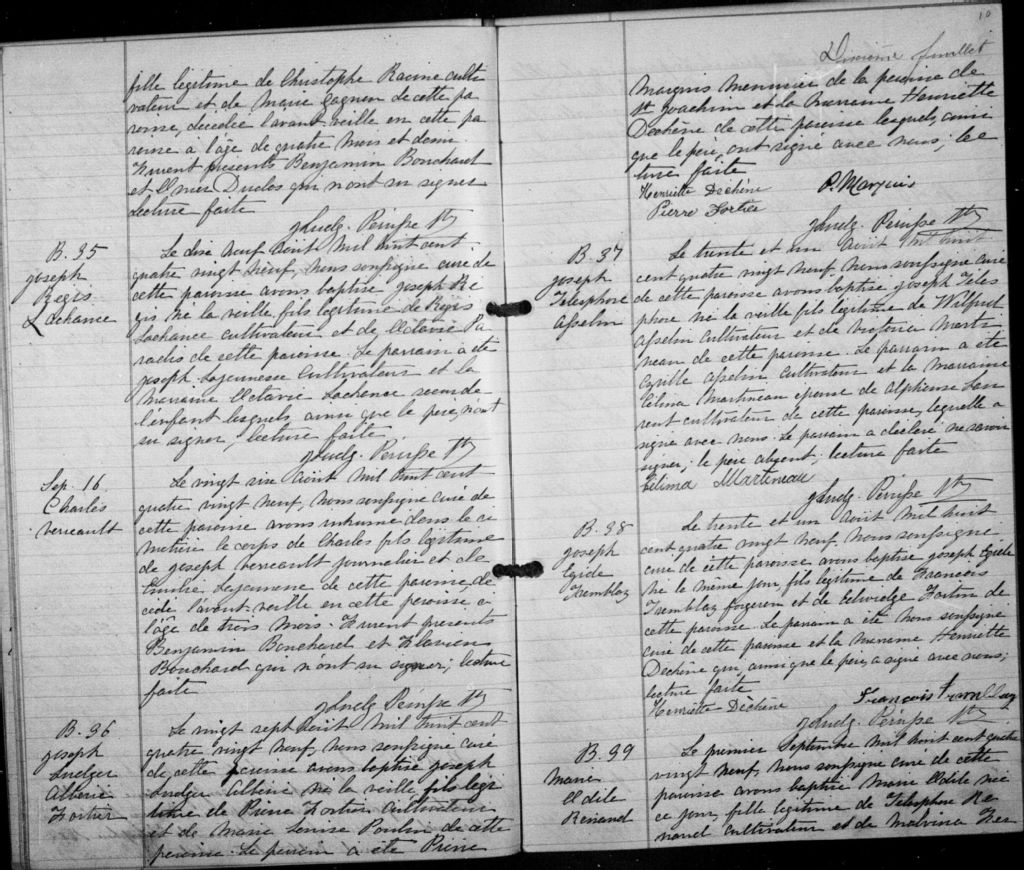 fille légitime de Christophe Racine culti
vateur et de Marie Gagnon de cette pa
roisse, décédée l'avant-veille en cette pa
roisse à l'âge de quatre mois et demi.
Furent présents Benjamin Bouchard
et Duclos qui n'ont su signer
lecture faite
B. 35
Joseph
Régis
Lachance
Le dix neuf août mil huit cent
quatre vingt neuf, nous soussigné curé de
cette paroisse avons baptisé Joseph Ré
gis né la veille, fils légitime de Régis
Lachance cultivateur et de Octavie Pa
radis de cette paroisse. Le parrain a été
Joseph Lajeunesse cultivateur et la
marraine Octavie Lachance
l'enfant lesquels ainsi que le père, n'ont
su signer, lecture faite.
Sep. 16
Charles
Verreault
Le vingt six août mil huit cent
quatre vingt neuf, nous soussigné curé de
cette paroisse avons inhumé dans le ci
metière le corps de Charles fils légitime
de Joseph Verreault journalier et de
Emilie Lajeunesse de cette paroisse, dé
cédé l'avant-veille en cette paroisse à
l'âge de trois mois. Furent présents
Benjamin Bouchard et Flavien
Bouchard qui n'ont su signer; lecture
faite
B. 36
Joseph
Ludger
Albéric
Fortier
Le vingt sept août mil huit cent
quatre vingt neuf, nous soussigné curé
de cette paroisse avons baptisé Joseph
Ludger Albéric né la veille, fils légi
time de Pierre Fortier cultivateur
et de Marie Louise Poulin de cette
paroisse. Le parrain a été Pierre
10
Dixième feuillet
Marquis menuisier de la paroisse de
St Joachim et la marraine Henriette
Dechêne de cette paroisse lesquels, ainsi
que le père, ont signé avec nous; lec
ture faite
Henriette Dechêne P. Marquis
Pierre Fortier
B. 37
Joseph
Télesphore
Asselin
Le trente et un août mil huit
cent quatre vingt neuf, nous soussigné curé
de cette paroisse avons baptisé Joseph Téles
phore né la veille fils légitime de Wilfrid
Asselin cultivateur et de Victoria Marti
neau de cette paroisse. Le parrain a été
Cyrille Asselin cultivateur et la marraine
Célina Martineau épouse de Alphonse Lau
rent cultivateur de cette paroisse, laquelle a
signé avec nous. Le parrain a déclaré ne savoir
signer; le père absent; lecture faite
Célima Martineau
B. 38
Joseph
Egide
Tremblay
Le trente et un août mil huit
cent quatre vingt neuf, nous soussigné
curé de cette paroisse avons baptisé Joseph Egide
né le même jour, fils légitime de François
Tremblay forgeron et de Edwidge Fortin de
cette paroisse. Le parrain a été nous soussigné
curé de cette paroisse et la marraine Henriette
Dechêne qui, ainsi que le père, a signé avec nous;
lecture faite
Henriette Dechêne François Tremblay
B. 39
Marie
Odile
Renaud
Le premier Septembre mil huit cent quatre
vingt neuf, nous soussigné curé de cette
paroisse avons baptisé Marie Odile née
ce jour, fille légitime de Télesphore Re
naud cultivateur et de Malvina